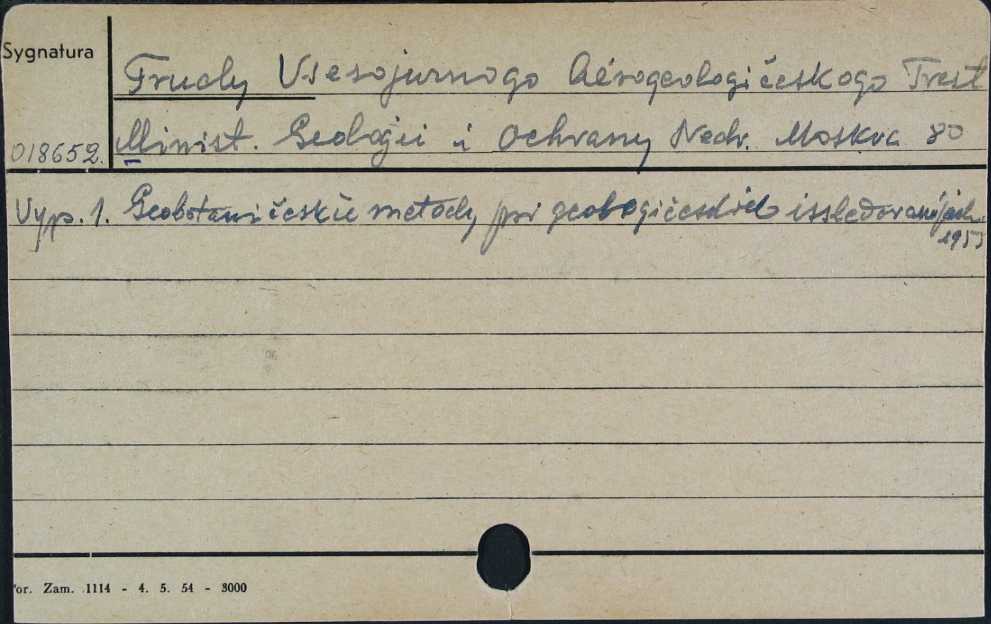 Sygnatura
Trudy Vsesojuznogo Aérogeologičeskogo Trest
018652. Minist. Geologii i Ochrany Nedr. Moskva 80
Vyp. 1. Geobotaničeskie metody pri geologičeskich issledovanijach.
1955
or. Zam. 1114 - 4. 5. 54 - 3000